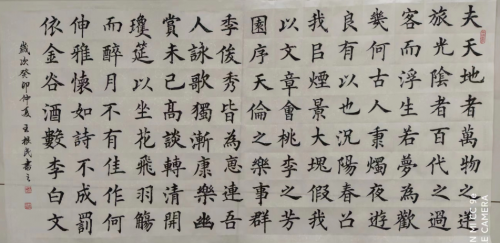 夫天地者萬物之逆
旅光陰者百代之過
客而浮生若夢為歡
幾何古人秉燭夜遊
良有以也況陽春召
我㠯煙景大塊假我
以文章會桃李之芳
園序天倫之樂事群
季俊秀皆為惠連吾
人詠歌獨漸康樂幽
賞未已高談轉清開
瓊筵以坐花飛羽觴
而醉月不有佳作何
伸雅懷如詩不成罰
依金谷酒數李白文
歲次癸卯仲夏王振民書
CAMERA